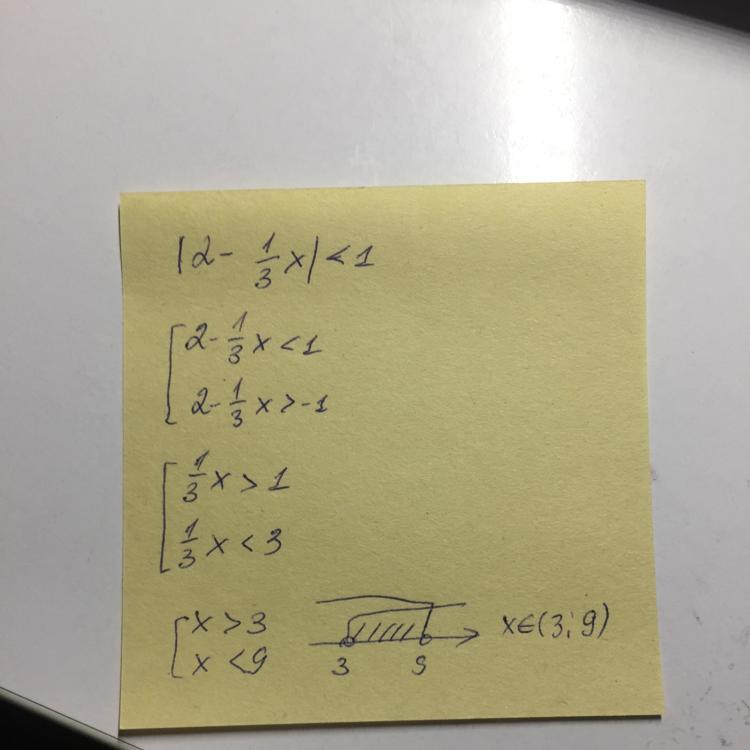 |2 - 1/3 x| < 1
[ 2 - 1/3 x < 1
2 - 1/3 x > -1
[ 1/3 x > 1
1/3 x < 3
[ x > 3
x < 9
3 9
x ∈ (3; 9)